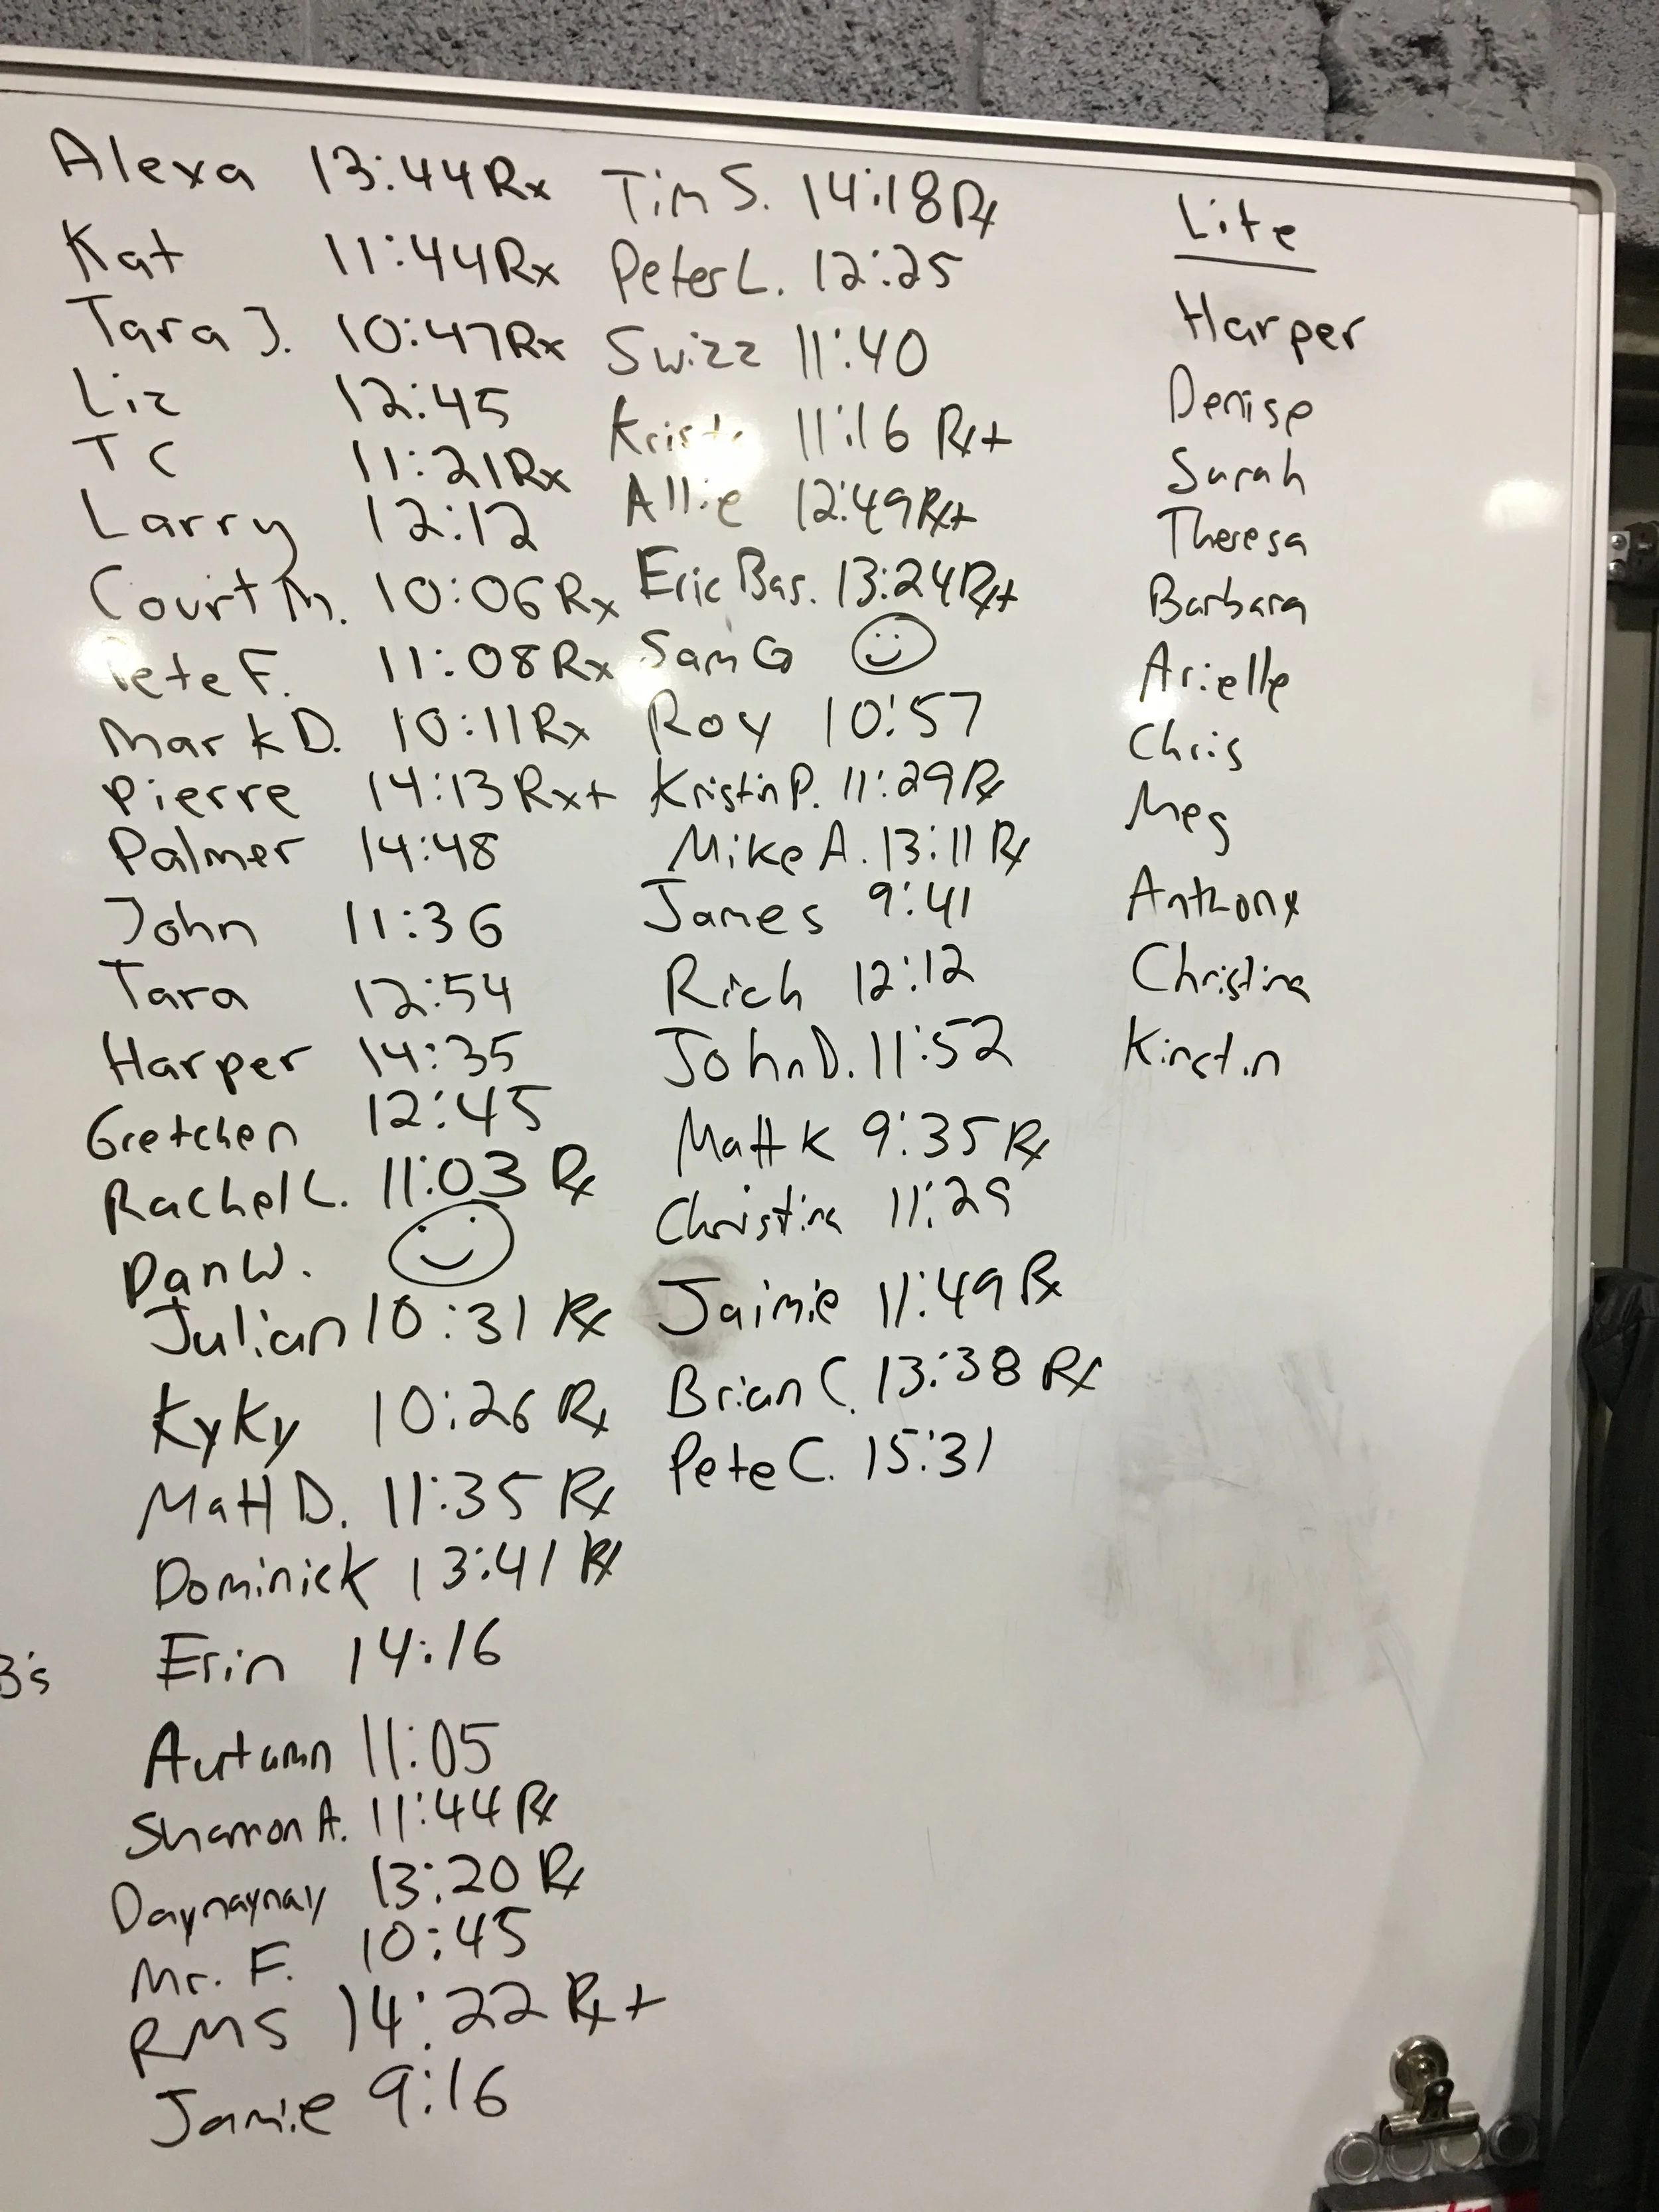 Alexa 13:44 Rx
Kat 11:44 Rx
Tara J. 10:47 Rx
Liz 12:45
TC 11:21 Rx
Larry 12:12
Court M. 10:06 Rx
Pete F. 11:08 Rx
Mark D. 10:11 Rx
Pierre 14:13 Rx+
Palmer 14:48
John 11:36
Tara 12:54
Harper 14:35
Gretchen 12:45
Rachel L. 11:03 Rx
Dan W.
Julian 10:31 Rx
KyKy 10:26 Rx
Matt D. 11:35 Rx
Dominick 13:41 Rx
Erin 14:16
Autumn 11:05
Shannon A. 11:44 Rx
Daynaynay 13:20 Rx
Mr. F. 10:45
RMS 14:22 Rx+
Jamie 9:16
Tim S. 14:18 Rx
Peter L. 12:25
Swizz 11:40
11:16 Rx+
Allie 12:49 Rx+
Eric Bas. 13:24 Rx+
Sam G
Roy 10:57
Kristin P. 11:29 Rx
Mike A. 13:11 Rx
James 9:41
Rich 12:12
John D. 11:52
Matt K 9:35 Rx
Christina 11:29
Jaimie 11:49 Rx
Brian C. 13:38 Rx
Pete C. 15:31
Lite
Harper
Denise
Sarah
Theresa
Barbara
Arielle
Chris
Meg
Anthony
Christina
Kirstin